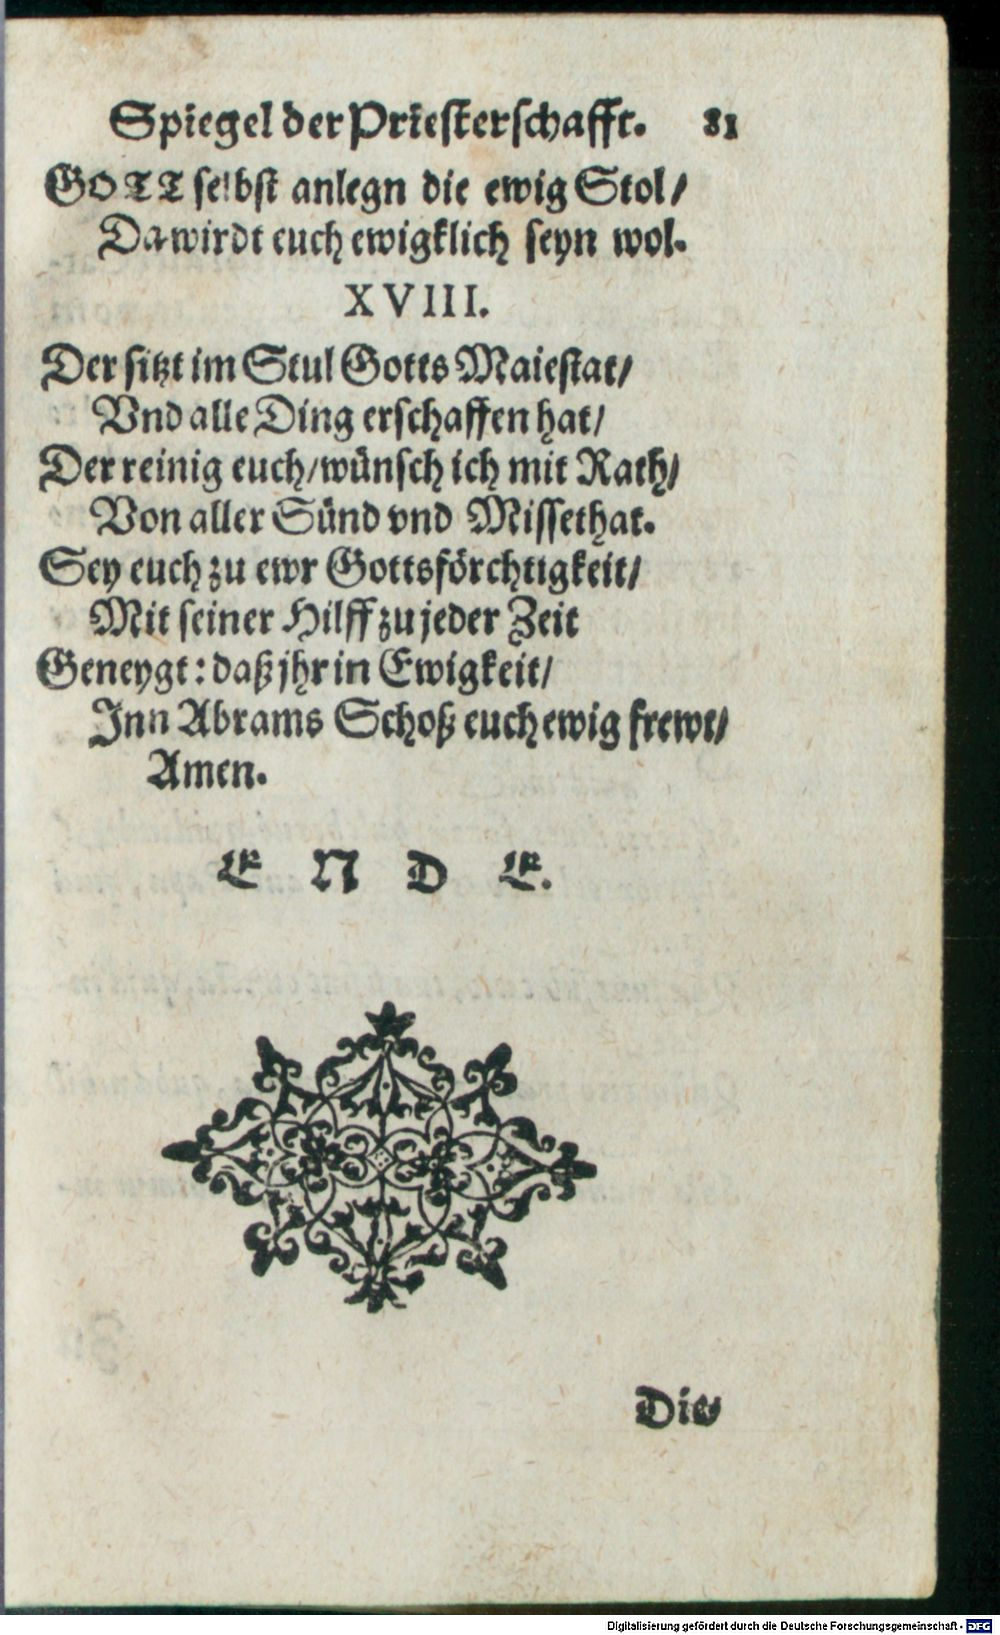 Spiegel der Priesterschafft. 81
GOTT selbst anlegn die ewig Stol/
Da wirdt euch ewigklich seyn wol.
XVIII.
Der sitzt im Stul Gotts Maiestat/
Vnd alle Ding erschaffen hat/
Der reinig euch/ wünsch ich mit Rath/
Von aller Sünd vnd Missethat.
Sey euch zu ewr Gottsförchtigkeit/
Mit seiner Hilff zu jeder Zeit
Geneygt: daß jhr in Ewigkeit/
Inn Abrams Schoß euch ewig frewt/
Amen.
E N D E.
Die
Digitalisierung gefördert durch die Deutsche Forschungsgemeinschaft - DFG